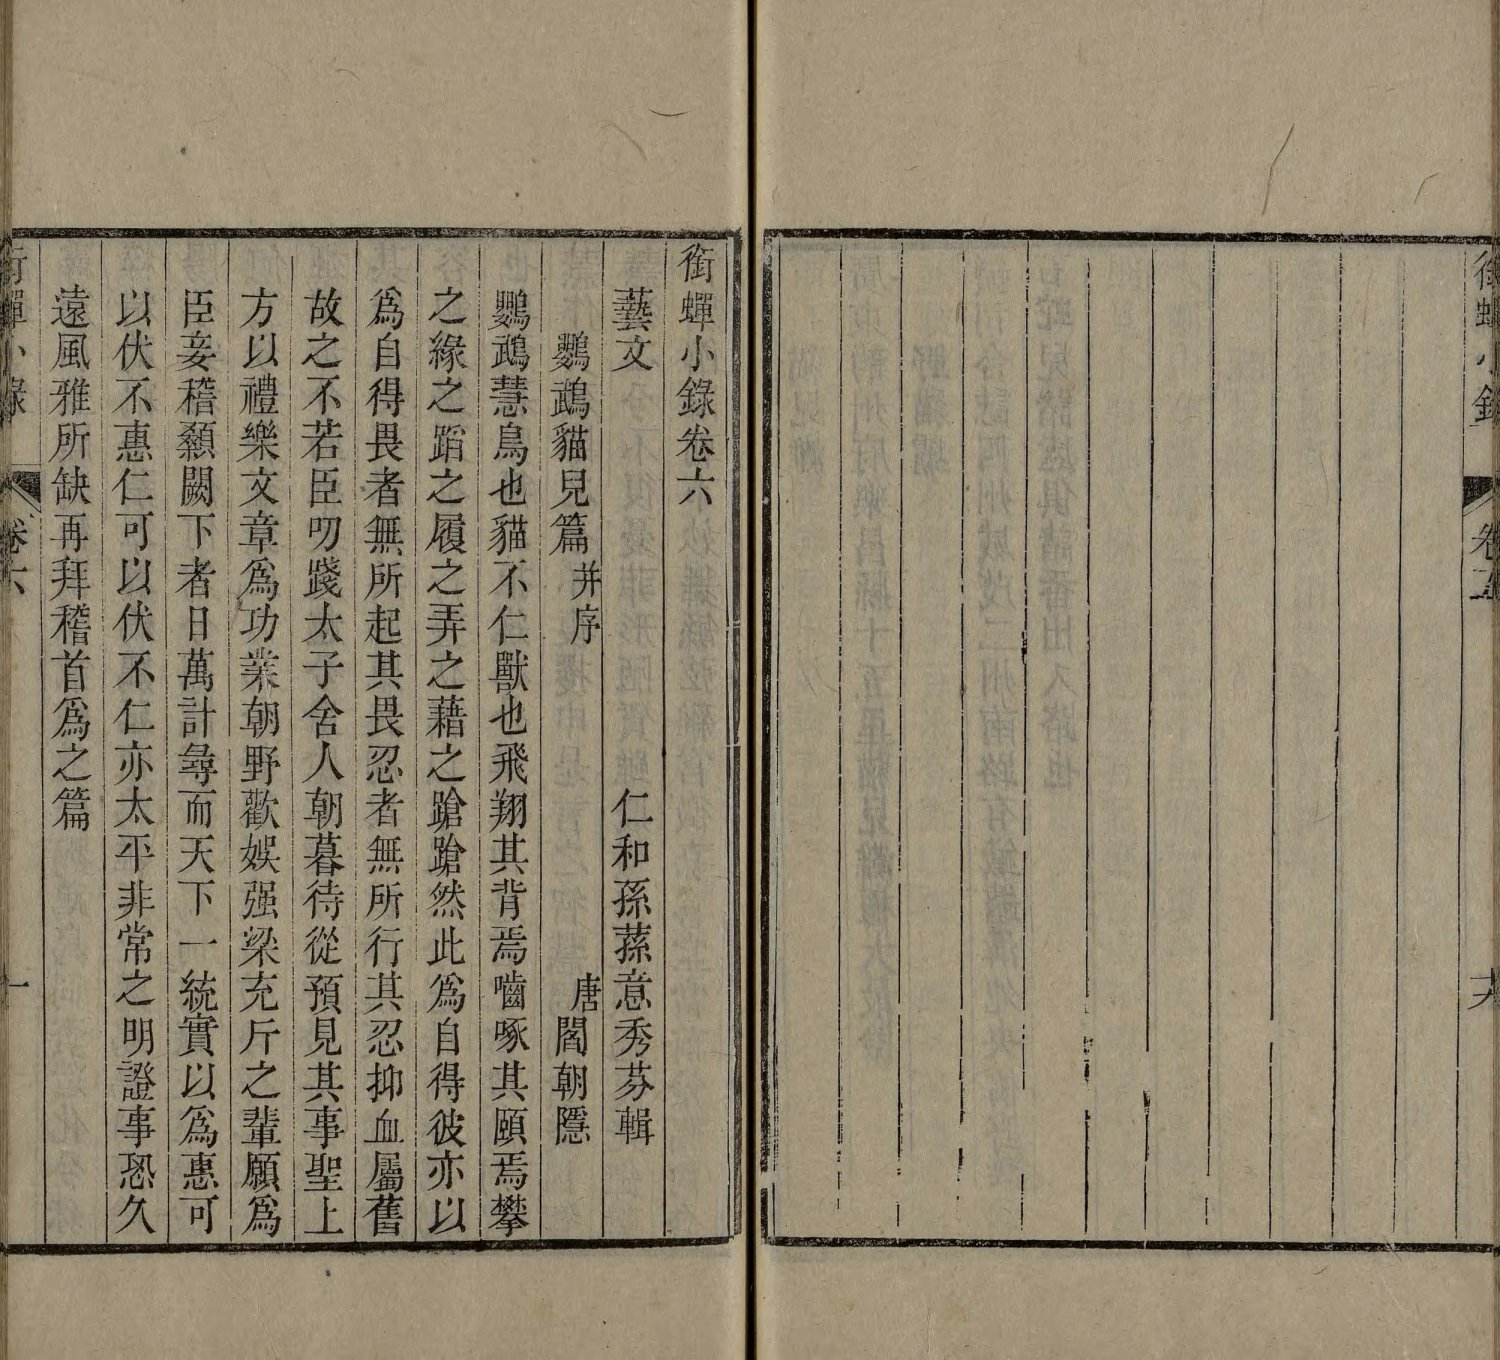 銜蟬小錄
卷五
十六
銜蟬小錄卷六
藝文
仁和孫蓀意秀芬輯
鸚鵡貓兒篇并序
唐閻朝隱
鸚鵡慧鳥也貓不仁獸也飛翔其背焉嚙啄其頤焉攀
之緣之蹈之履之弄之藉之蹌蹌然此爲自得彼亦以
爲自得畏者無所起其畏忍者無所行其忍抑血屬舊
故之不若臣叨踐太子舍人朝暮待從預見其事聖上
方以禮樂文章爲功業朝野歡娛强梁充斥之輩願爲
臣妾稽顙闕下者日萬計尋而天下一統實以爲惠可
以伏不惠仁可以伏不仁亦太平非常之明證事恐久
遠風雅所缺再拜稽首爲之篇
銜蟬小錄
卷六
一